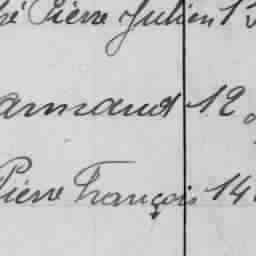 Pierre Julien 1
armand 12
Pierre François 14